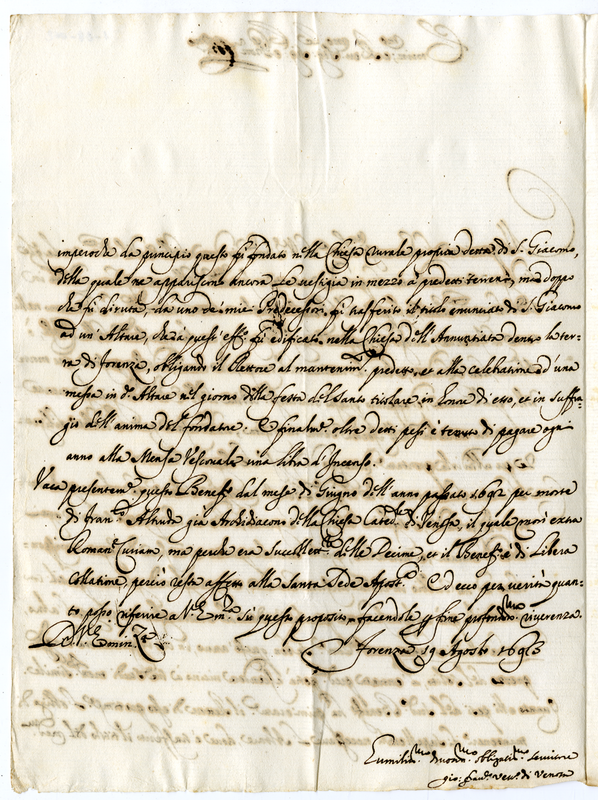 imperoche da principio questo fù fondato nella Chiesa rurale propria detta di S. Giacomo,
della quale ne appariscono ancora le vestigia in mezzo à predetti terreni, mà doppo
che fù diruta, da uno de miei Predecessori fù trasferito il titolo enunciato di S. Giacomo
ad un' Altare, che à quest' eff.o fù edificato nella Chiesa dell' Annuntiata dentro la ter-
ra di forenza, obligando il Rettore al mantenim.to predetto, et alla celebratione d' una
messa in d.o Altare nel giorno della festa del Santo titolare in honore di esso, et in suffra-
gio dell' anima del fondatore. E finalm.te oltre detti pesi è tenuto di pagare ogni
anno alla Mensa Vescovale una libra d' Incenso.
Vaca presentem.te questo Benef.o dal mese di Giugno dell' anno passato 1692 per morte
di Fran.co già Archidiacono della Chiesa Cated.le di Venosa, il quale morì extra
Roman. Curiam, ma perche era delle Decime, et il Benef.o è di libera
Collatione, perciò resta affetto alla Santa Sede Apost.ca Ed ecco per verità quan-
to posso riferire a V. Em.a sù questo proposito, facendole p fine profondiss.mo riverenza.
D. V. Emin.za Forenza 19 Agosto 1693
Humiliss.mo obligatiss.mo servitore
gio: Fran.co vesc.o di Venosa